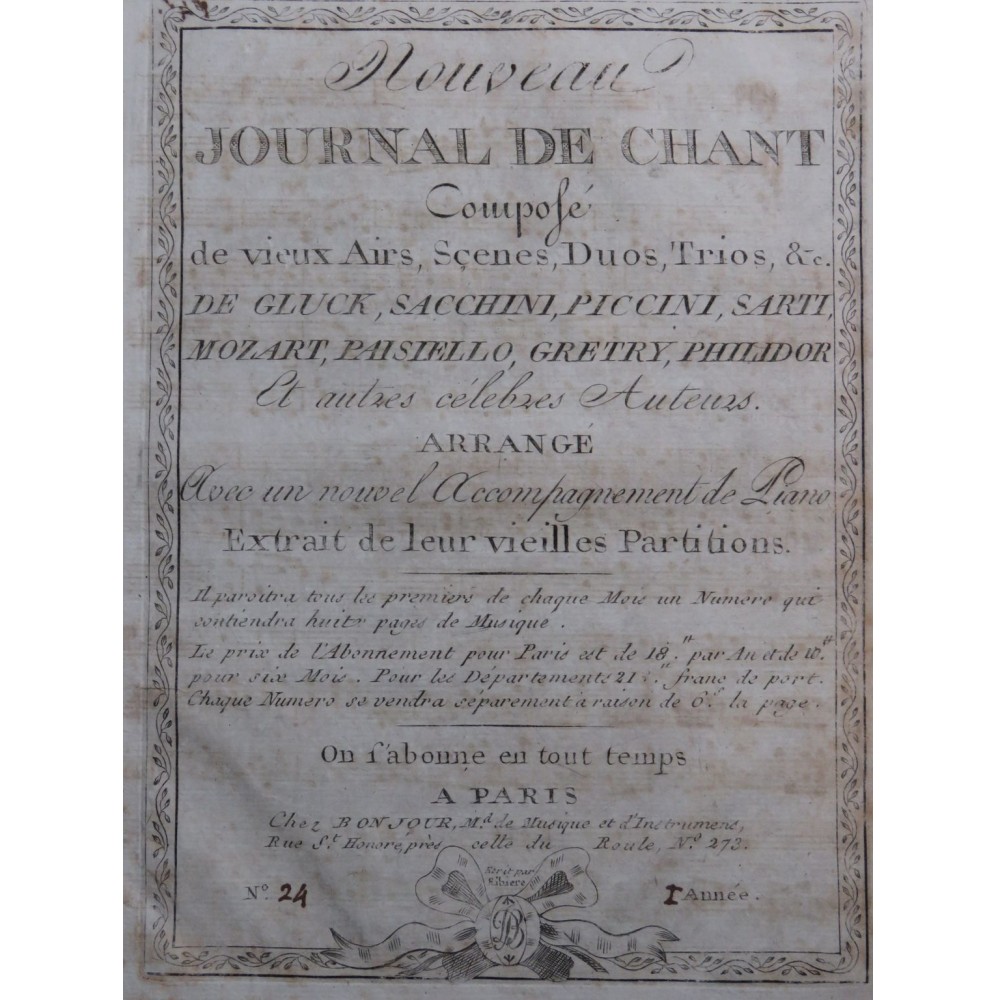 Nouveau
JOURNAL DE CHANT
Composé
de vieux Airs, Sçenes, Duos, Trios, &c.
DE GLUCK, SACCHINI, PICCINI, SARTI,
MOZART, PAISIELLO, GRETRY, PHILIDOR
Et autres célebres Auteurs.
ARRANGÉ
Avec un nouvel Accompagnement de Piano
Extrait de leur vieilles Partitions.
Il paroitra tous les premiers de chaque Mois un Numero qui
contiendra huit pages de Musique.
Le prix de l'Abonnement pour Paris est de 18.tt par An et de 10.tt
pour six Mois. Pour les Départements 21.tt franc de port.
Chaque Numero se vendra séparement à raison de 6.s la page.
On s'abonne en tout temps
A PARIS
Chez BONJOUR, M.d de Musique et d'Instrumens,
Rue S.t Honore, près celle du Roule, N.o 273.
Ecrit par
Ribiere
N.o 24 I Année.